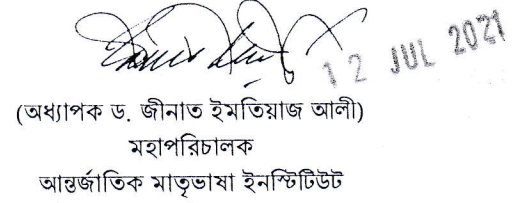 12 JUL 2021
(অধ্যাপক ড. জীনাত ইমতিয়াজ আলী)
মহাপরিচালক
আন্তর্জাতিক মাতৃভাষা ইনস্টিটিউট